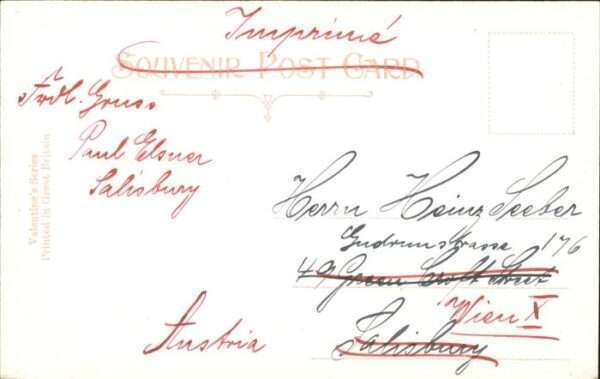 Imprimé
SOUVENIR POST CARD
Frdl. Gruss
Paul Elsner
Salisbury
Valentine's Series
Printed in Great Britain
Herrn Heinz Seeber
Gudrunstrasse 176
49 Green Croft Street
Wien X
Salisbury
Austria